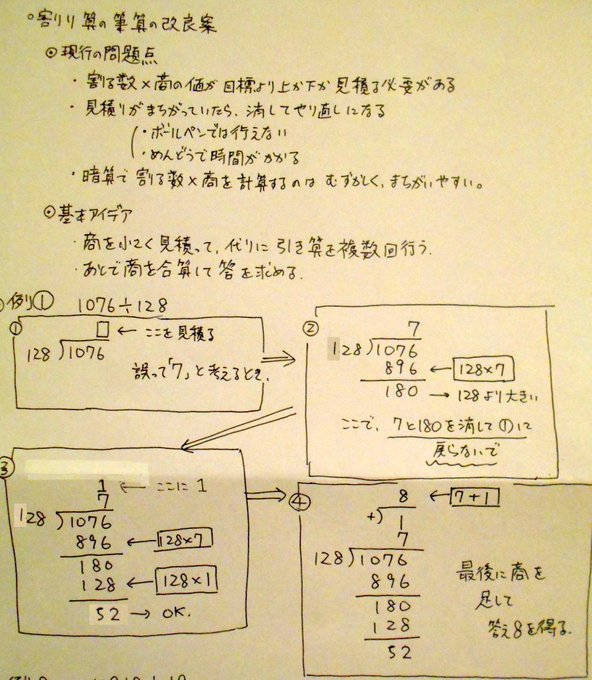 ○割り算の筆算の改良案
◎現行の問題点
・割る数×商の値が目標より上か下か見積る必要がある
・見積りがまちがっていたら、消してやり直しになる
・ボールペンでは行えない
・めんどうで時間がかかる
・暗算で割る数×商を計算するのはむずかしく、まちがいやすい。
◎基本アイデア
・商を小さく見積って、代りに引き算を複数回行う.
・あとで商を合算して答を求める.
例①　1076÷128
①
□ ← ここを見積る
128)1076
誤って「7」と考えるとき.
②
7
128)1076
896 ← 128×7
180 → 128より大きい
ここで、7と180を消して①に
戻らないで
③
1 ← ここに1
7
128)1076
896 ← 128×7
180
128 ← 128×1
52 → OK.
④
8 ← 7+1
+)1
7
128)1076
896
180
128
52
最後に商を
足して
答え8を得る.